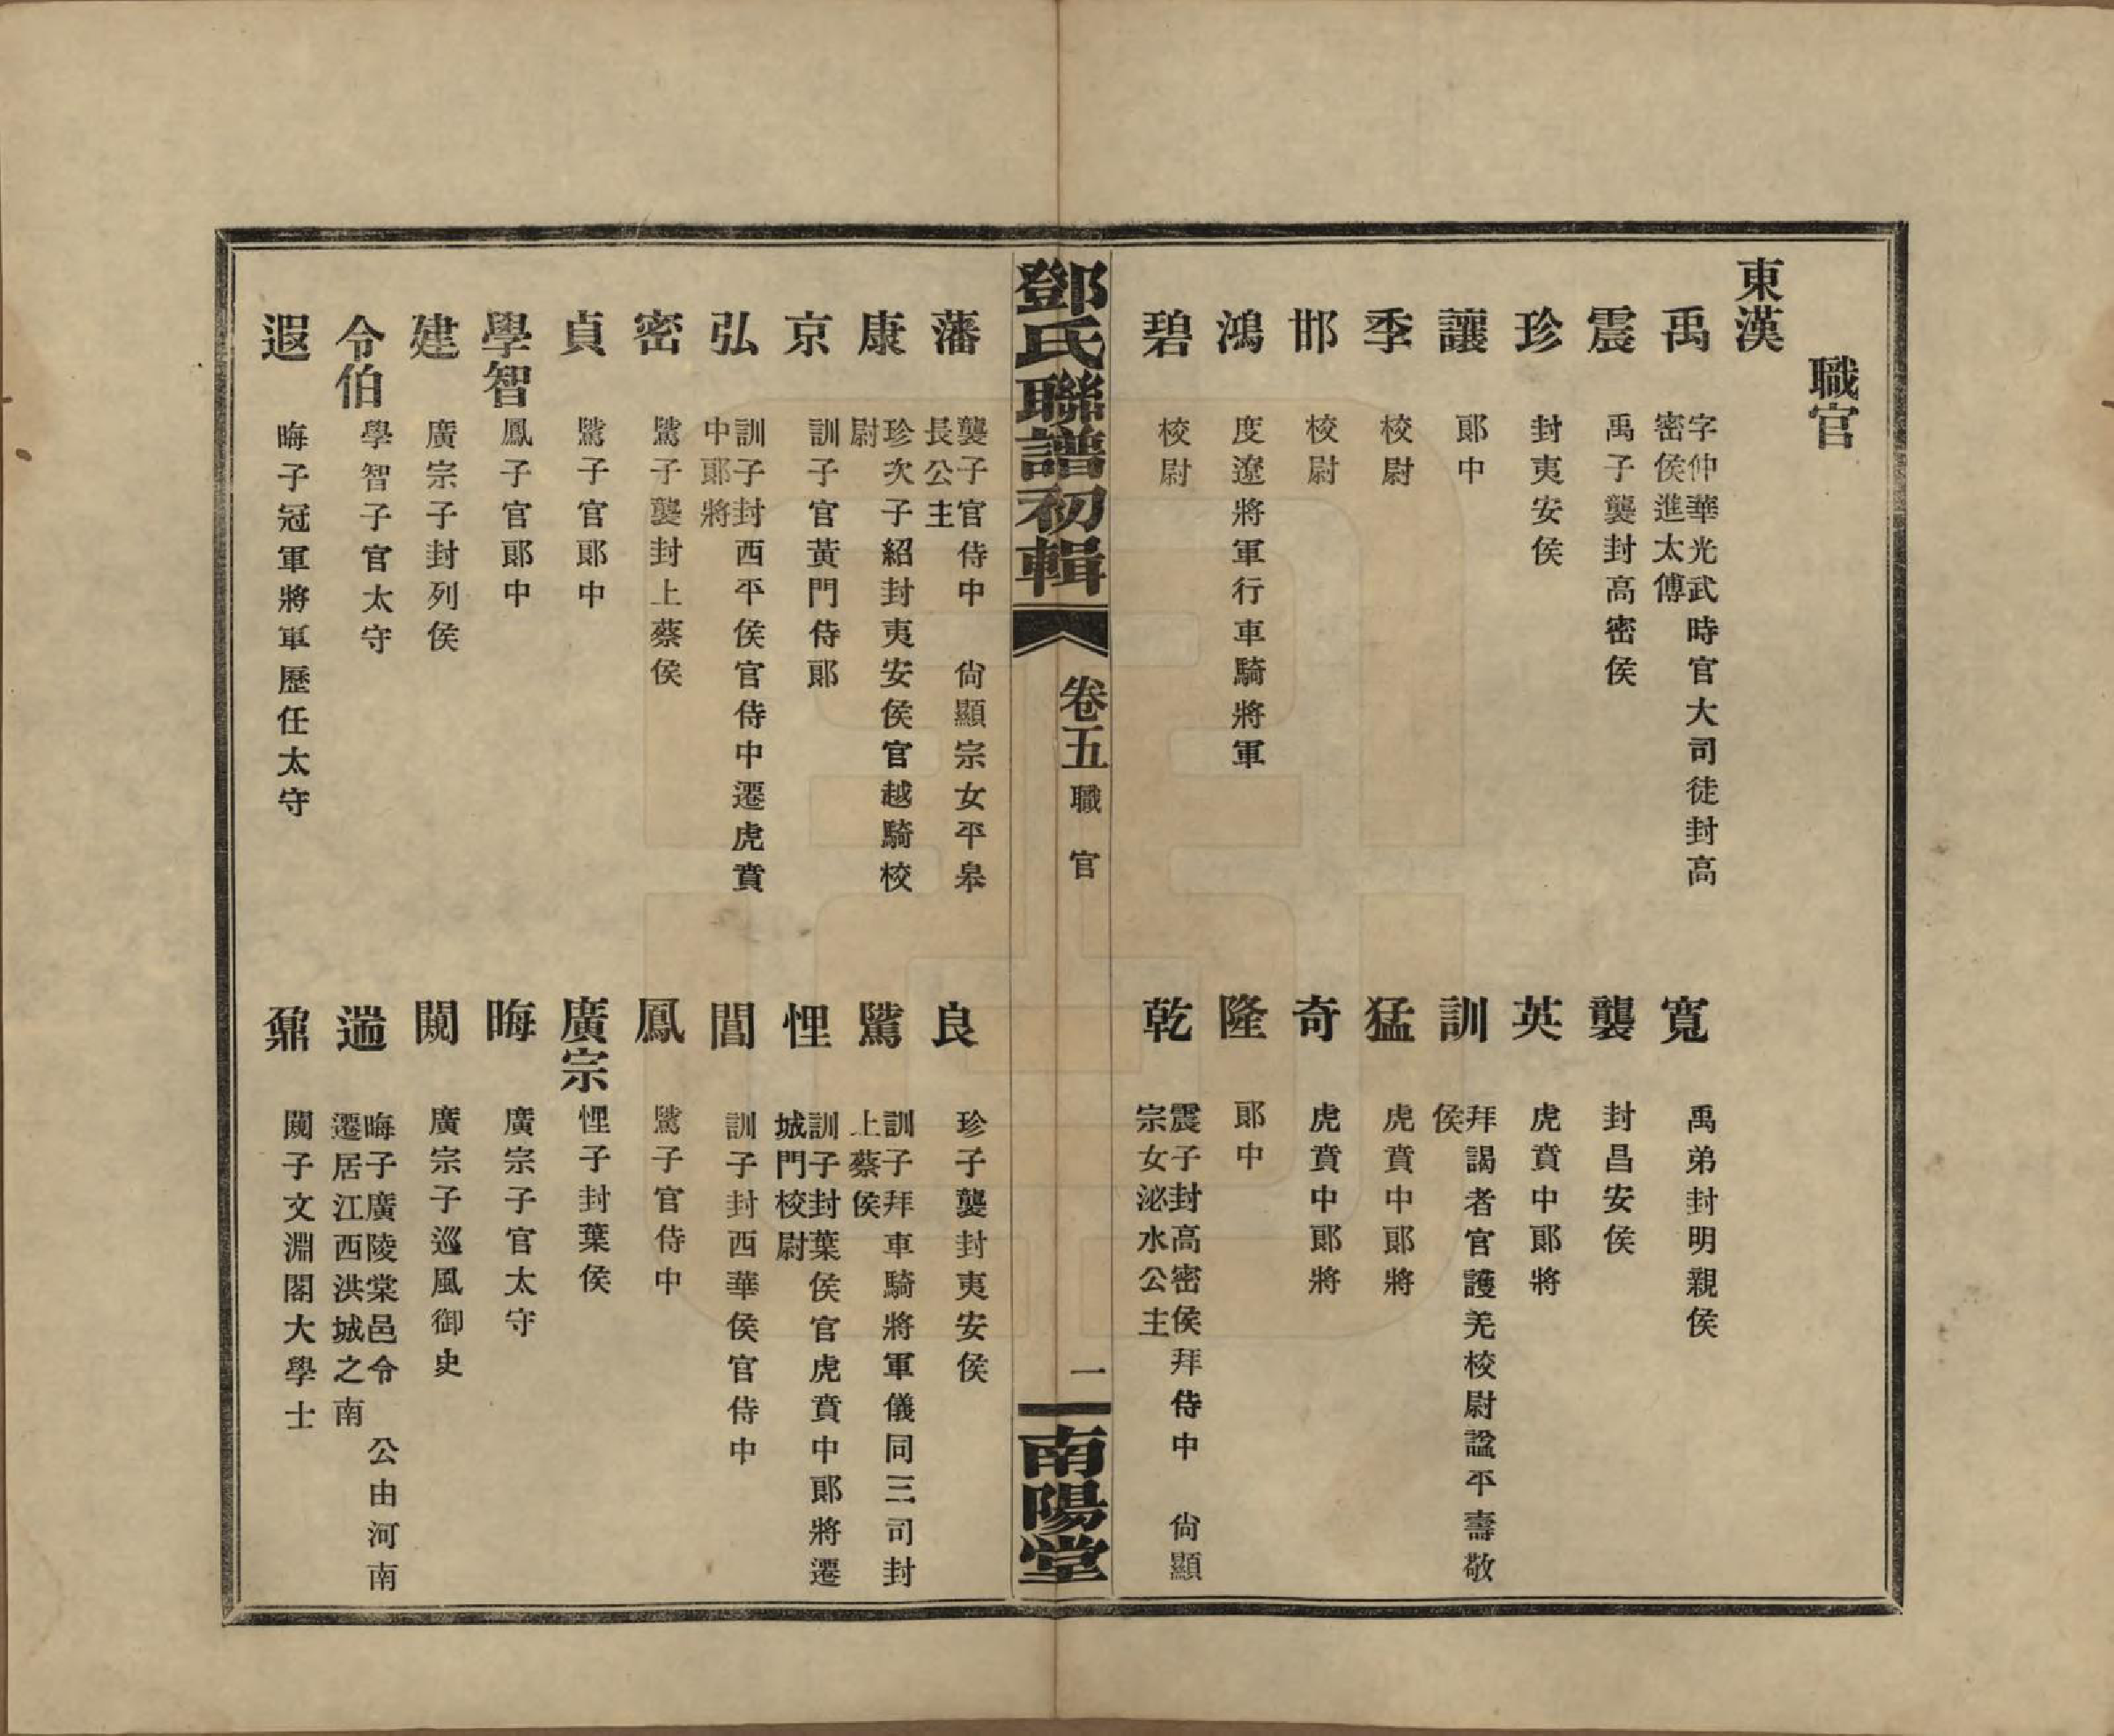 職官
東漢
禹 字仲華光武時官大司徒封高
密侯進太傅
寬 禹弟封明親侯
震 禹子襲封高密侯
襲 封昌安侯
珍 封夷安侯
英 虎賁中郎將
讓 郎中
訓 拜謁者官護羌校尉諡平壽敬
侯
季 校尉
猛 虎賁中郎將
邯 校尉
奇 虎賁中郎將
鴻 度遼將軍行車騎將軍
隆 郎中
碧 校尉
乾 震子封高密侯拜侍中 尙顯
宗女泌水公主
鄧氏聯譜初輯 卷五 職官 一 南陽堂
藩 襲子官侍中 尙顯宗女平皋
長公主
良 珍子襲封夷安侯
康 珍次子紹封夷安侯官越騎校
尉
騭 訓子拜車騎將軍儀同三司封
上蔡侯
京 訓子官黃門侍郎
悝 訓子封葉侯官虎賁中郎將遷
城門校尉
弘 訓子封西平侯官侍中遷虎賁
中郎將
閶 訓子封西華侯官侍中
密 騭子襲封上蔡侯
鳳 騭子官侍中
貞 騭子官郎中
廣宗 悝子封葉侯
學智 鳳子官郎中
晦 廣宗子官太守
建 廣宗子封列侯
闋 廣宗子巡風御史
令伯 學智子官太守
遄 晦子廣陵棠邑令 公由河南
遷居江西洪城之南
遐 晦子冠軍將軍歷任太守
鼐 闋子文淵閣大學士